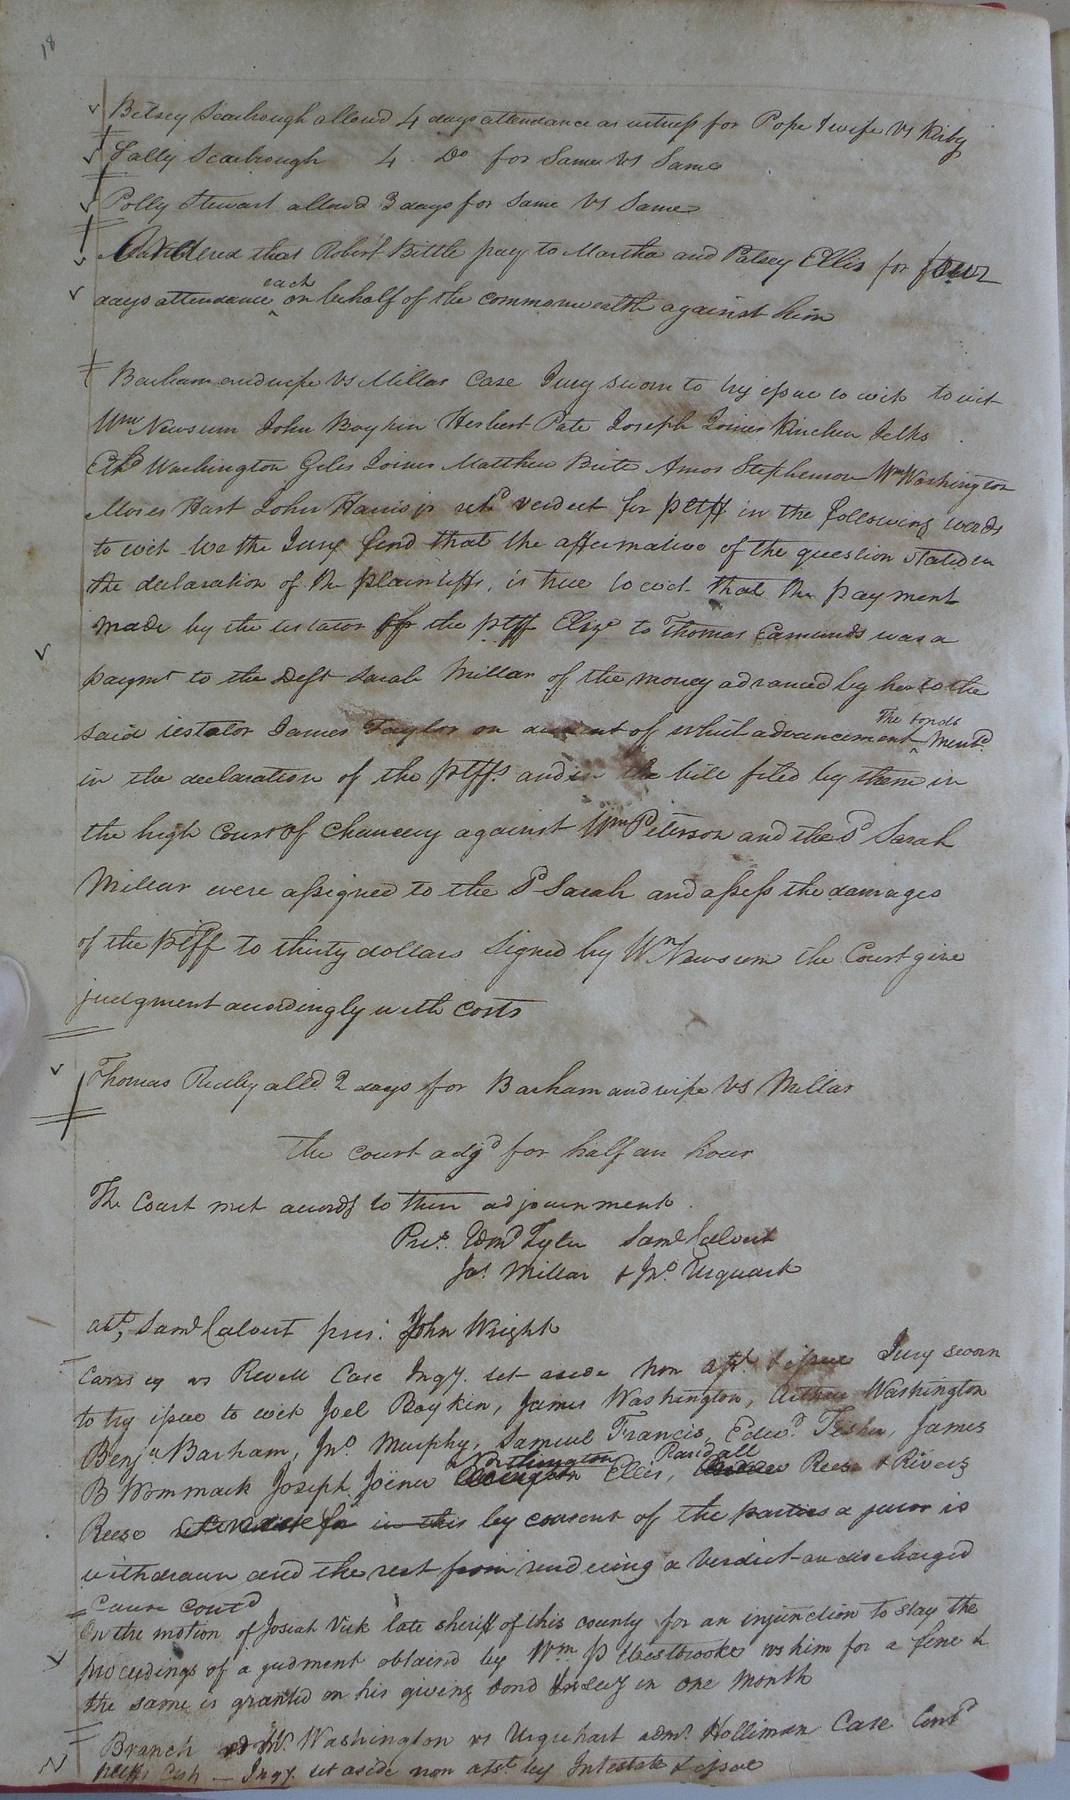 18
Betsey Scarbrough allowed 4 days attendance as witness for Pope & wife vs Kirby
Sally Scarbrough 4 Do for Same vs Same
Polly Stewart allowd 3 days for Same vs Same
Considered that Robert Bittle pay to Martha and Patsey Ellis for four
days attendance each on behalf of the commonwealth against him
Barham and wife vs Millar Case Jury sworn to try issue to wit to wit
Wm Newsum John Boykin Herbert Pate Joseph Joiner Kinchen Jelks
Ethd Washington Giles Joiner Matthew Brite Amos Stephenson Wm Washington
Moses Hart John Harris jr retd verdect for pltff in the following words
to wit We the Jury find that the affirmative of the question stated in
the declaration of the plaintiffs, is true to wit that the payment
made by the testator of the pltff Eliza to Thomas Edmunds was a
paymt to the Deft Sarah Millar of the money advanced by her to the
said testator James Taylor on account of which advancement The bonds Mentd
in the declaration of the pltffs and in the bill filed by them in
the high Court of Chancery against Wm Peterson and the sd Sarah
Millar were assigned to the sd Sarah and assess the damages
of the pltff to thirty dollars Signed by Wm Newsum the Court give
judgment accordingly with costs
Thomas Ridley alld 2 days for Barham and wife vs Millar
the court adjd for half an hour
The Court met accordg to their adjournment.
Pres. Edmd Tyler Saml Calvert
Jas. Millar & Jno Urquart
abt, Saml Calvert pres: John Wright
vs Revell Case Inqy. set aside non asst. & issue Jury sworn
to try issue to wit Joel Boykin, James Washington, Arthur Washington
Benja Barham, Jno Murphy, Samuel Francis, Edwd Fisher, James
B Wommack Joseph Joiner Worthington Ellis, Randall Reese & Rivers
Reese in this by consent of the parties a juror is
withdrawn and the rest from rendering a Verdict are discharged
Cause contd
On the motion of Josiah Vick late sheriff of this county for an injunction to stay the
proceedings of a judment obtaind by Wm P Westbrooke vs him for a fine &
the same is granted on his giving bond & secy in one month
Branch Washington vs Urquhart admr Holliman Case Contd
Inqy. set aside non asst. by Intestate & issue